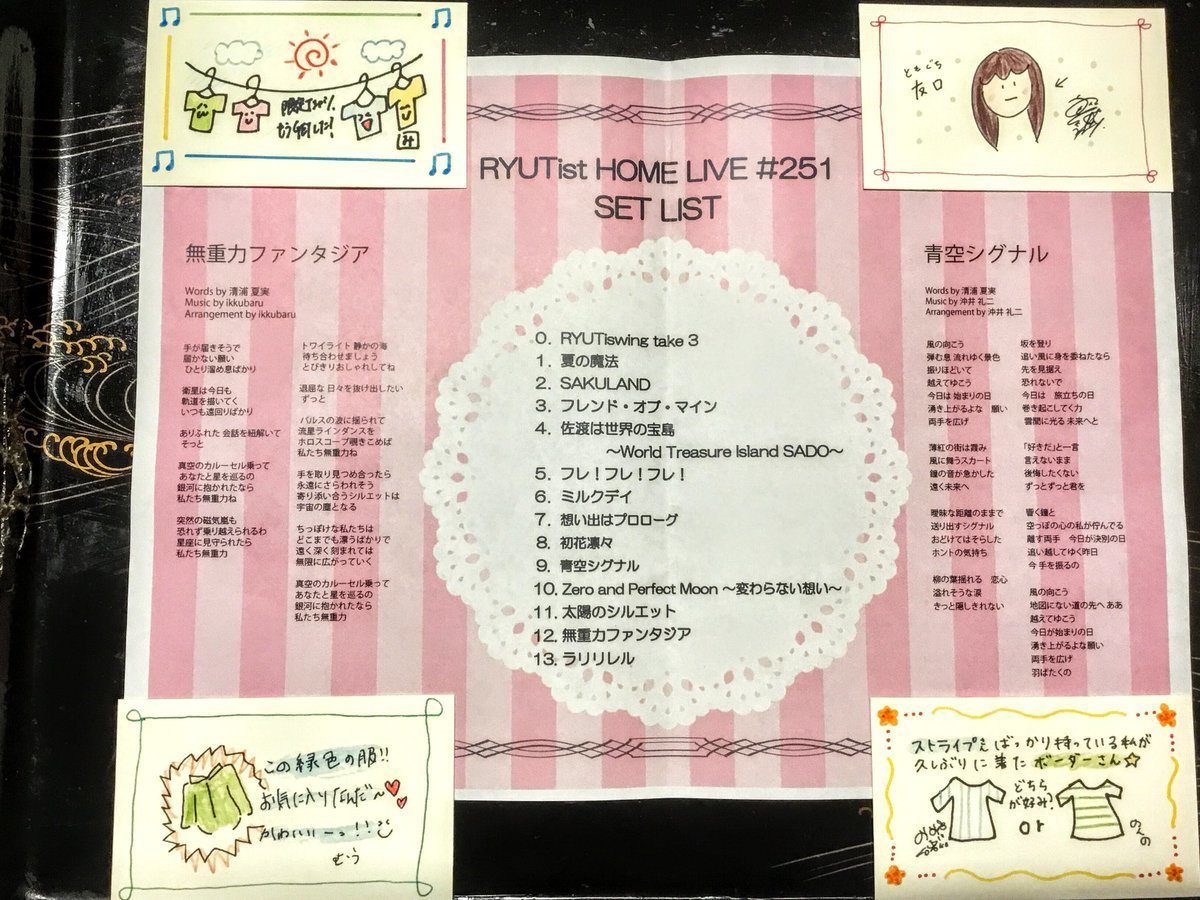 限定Tシャツ、
もう1回した!
み
ともぐち
友口
RYUTist HOME LIVE #251
SET LIST
無重力ファンタジア
Words by 清浦 夏実
Music by ikkubaru
Arrangement by ikkubaru
手が届きそうで
届かない願い
ひとり溜め息ばかり
衛星は今日も
軌道を描いてく
いつも遠回りばかり
ありふれた 会話を紐解いて
そっと
真空のカルーセル乗って
あなたと星を巡るの
銀河に抱かれたなら
私たち無重力ね
突然の磁気嵐も
恐れず乗り越えられるわ
星座に見守られたら
私たち無重力
トワイライト 静かの海
待ち合わせましょう
とびきりおしゃれしてね
退屈な 日々を抜け出したい
ずっと
パルスの波に揺られて
流星ラインダンスを
ホロスコープ覗きこめば
私たち無重力ね
手を取り見つめ合ったら
永遠にさらわれそう
寄り添い合うシルエットは
宇宙の塵となる
ちっぽけな私たちは
どこまでも漂うばかりで
遠く深く刻まれては
無限に広がっていく
真空のカルーセル乗って
あなたと星を巡るの
銀河に抱かれたなら
私たち無重力
0. RYUTiswing take 3
1. 夏の魔法
2. SAKULAND
3. フレンド・オブ・マイン
4. 佐渡は世界の宝島
～World Treasure Island SADO～
5. フレ!フレ!フレ!
6. ミルクデイ
7. 想い出はプロローグ
8. 初花凛々
9. 青空シグナル
10. Zero and Perfect Moon ～変わらない想い～
11. 太陽のシルエット
12. 無重力ファンタジア
13. ラリリレル
青空シグナル
Words by 清浦 夏実
Music by 沖井 礼二
Arrangement by 沖井 礼二
風の向こう
弾む息 流れゆく景色
振りほどいて
越えてゆこう
今日は 始まりの日
湧き上がるよな 願い
両手を広げ
薄紅の街は霞み
風に舞うスカート
鐘の音が急かした
遠く未来へ
曖昧な距離のままで
送り出すシグナル
おどけてはそらした
ホントの気持ち
柳の葉揺れる 恋心
溢れそうな涙
きっと隠しきれない
坂を登り
追い風に身を委ねたなら
先を見据え
恐れないで
今日は 旅立ちの日
巻き起こしてく力
雲間に光る 未来へと
「好きだ」と一言
言えないまま
後悔したくない
ずっとずっと君を
響く鐘と
空っぽの心の私が佇んでる
離す両手 今日が決別の日
追い越してゆく昨日
今 手を振るの
風の向こう
地図にない道の先へ ああ
越えてゆこう
今日が始まりの日
湧き上がるよな願い
両手を広げ
羽ばたくの
この緑色の服!!
お気に入りなんだ～
かわいいーっ!!
むう
ストライプばっかり持っている私が
久しぶりに着た ボーダーさん☆
どちら
が好み?
or
のんの